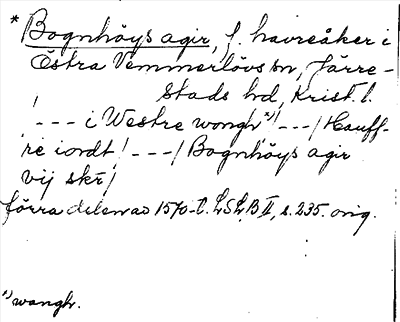 * Bognhöys agir, f. havreåker i
Östra Vemmerlövs sn, Järre-
stads hd, Krist. l.
! --- i Westre wongh ¹) /---/ Hauff-
re iordt / ---/ Bognhöys agir
vij skr /
förra delen av 1570-t. LSLB II, s. 235. orig.
¹) wangh.